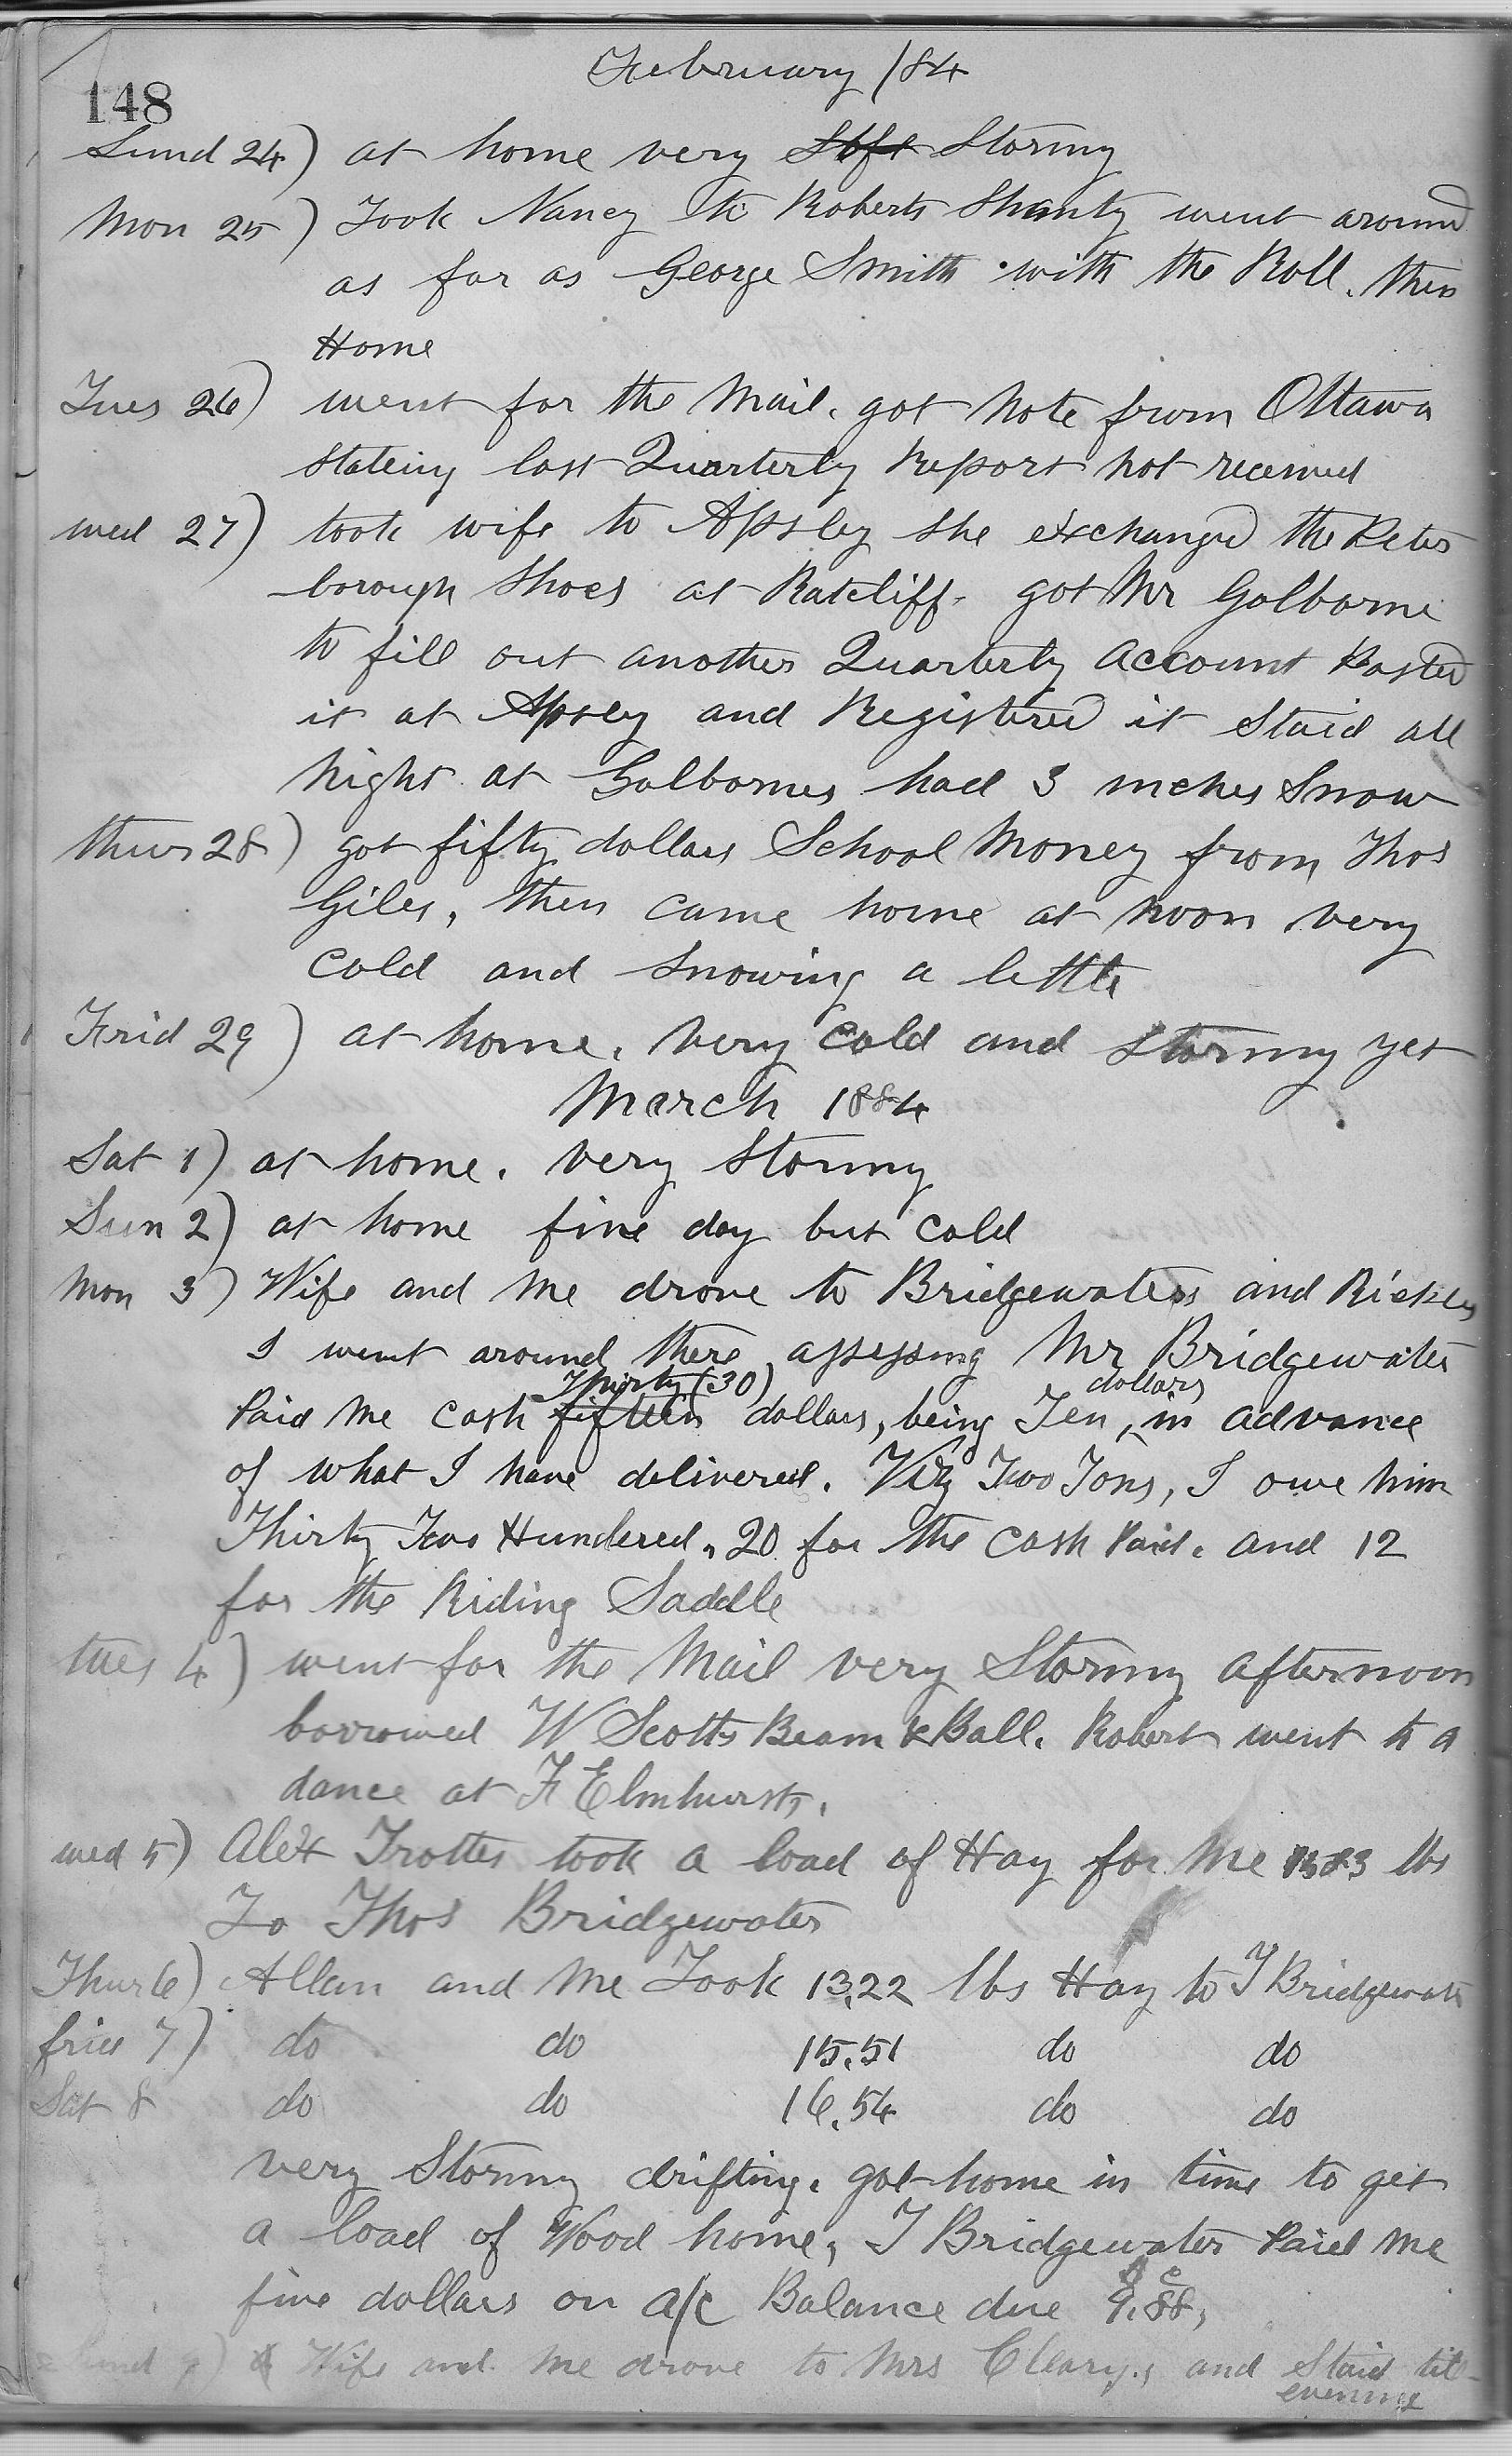 February /84
148
Sund 24) at home very Soft Stormy
Mon 25) Took Nancy to Roberts Shanty went around
as far as George Smith with the Roll. then
Home
Tues 26) went for the Mail. got Note from Ottawa
stateing last Quarterly Report not received
wed 27) took wife to Apsley she exchanged the Peter
borough Shoes at Ratcliff. got Mr Golborne
to fill out another Quarterly Account Posted
it at Apsley and Registered it Staid all
night at Golbornes had 3 inches Snow
thurs 28) got fifty dollars School Money from Thos
Giles, then came home at noon very
Cold and Snowing a little
Frid 29) at home. very Cold and Stormy yet
March 1884
Sat 1) at home. very Stormy
Sun 2) at home fine day but Cold
Mon 3) Wife and Me drove to Bridgewaters and
I went around there assessing Mr Bridgewater
Thirty (30) dollars
Paid Me Cash fifteen dollars, being Ten, in advance
of what I have delivered. Viz Two Tons, I owe him
Thirty Two Hundered. 20 for the Cash Paid. and 12
for the Riding Saddle
tues 4) went for the Mail very Stormy afternoon
borrowed W Scotts Beam & Ball. Robert went to a
dance at F Elmhursts.
wed 5) Alex Trotter took a load of Hay for Me 1583 lbs
To Thos Bridgewater
Thur 6) Allan and Me Took 13,22 lbs Hay to T Bridgewater
frid 7) do do 15.51 do do
Sat 8 do do 16.54 do do
very Stormy drifting. got home in time to get
a load of Wood home, T Bridgewater Paid Me
five dollars on a/c Balance due $ c 9.88,
Sund 9) Wife and Me drove to Mrs Clearys, and Staid till
evening